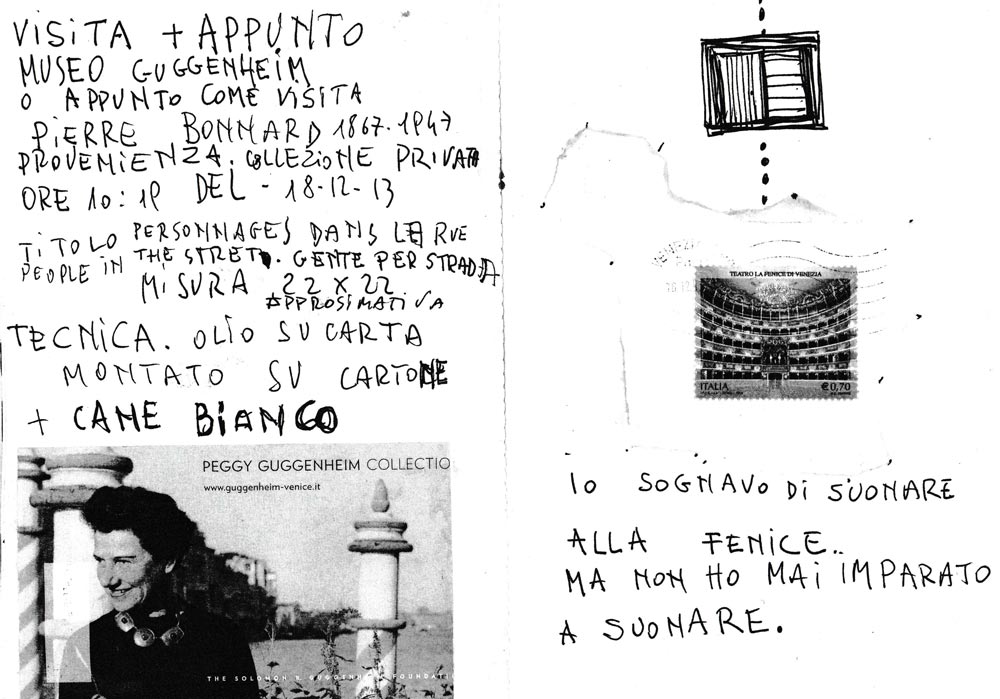 VISITA + APPUNTO
MUSEO GUGGENHEIM
O APPUNTO COME VISITA
PIERRE BONNARD 1867-1947
PROVENIENZA. COLLEZIONE PRIVATA
ORE 10:19 DEL - 18-12-13
TITOLO PERSONNAGES DANS LE RUE
PEOPLE IN THE STRET. GENTE PER STRADA
MISURA 22 X 22
APPROSIMATIVA
TECNICA. OLIO SU CARTA
MONTATO SU CARTONE
+ CANE BIANCO
PEGGY GUGGENHEIM COLLECTIO
www.guggenheim-venice.it
THE SOLOMON R. GUGGENHEIM FOUNDATI
TEATRO LA FENICE DI VENEZIA
ITALIA €0,70
IO SOGNAVO DI SUONARE
ALLA FENICE..
MA NON HO MAI IMPARATO
A SUONARE.